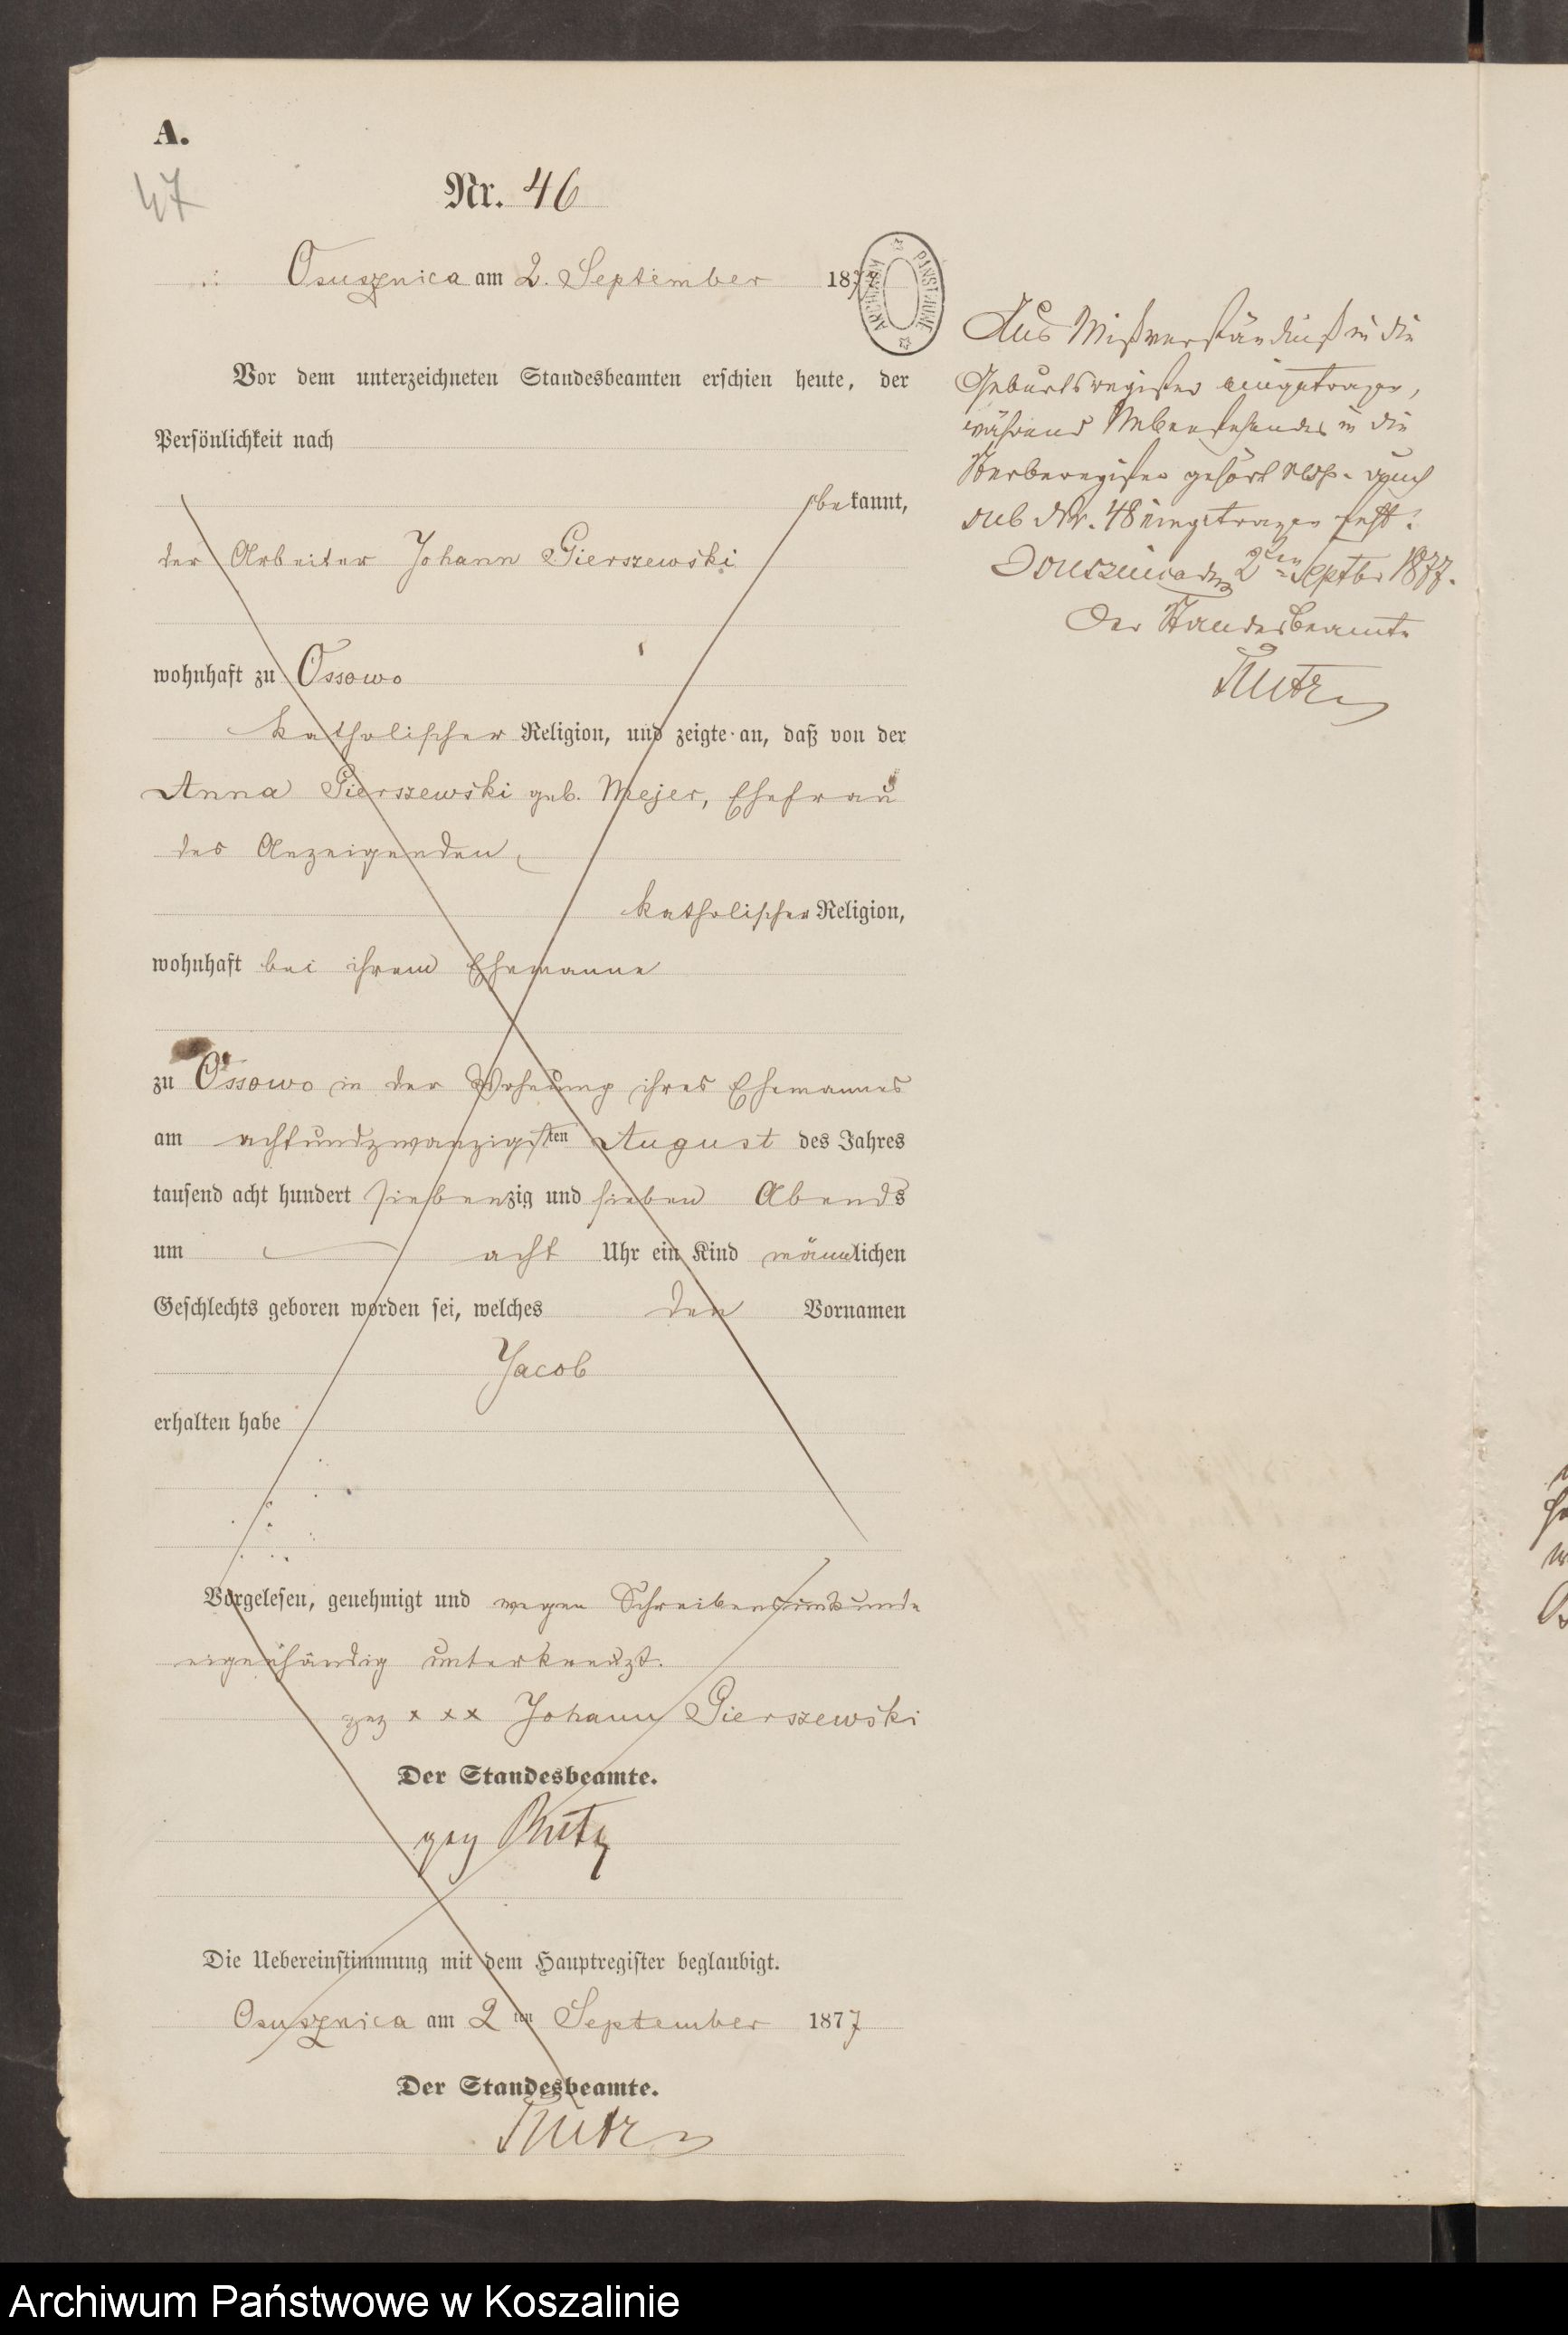 A.
47
Nr. 46
Osusznica am 2. September 1877
ARCHIWUM PAŃSTWOWE
Vor dem unterzeichneten Standesbeamten erschien heute, der
Persönlichkeit nach
bekannt,
der Arbeiter Johann Gierszewski
wohnhaft zu Ossowo
katholischer Religion, und zeigte an, daß von der
Anna Gierszewski geb. Mejer, Ehefrau
des Anzeigenden,
katholischer Religion,
wohnhaft bei ihrem Ehemanne
zu Ossowo in der Wohnung ihres Ehemannes
am achtundzwanzigsten August des Jahres
tausend acht hundert siebenzig und sieben Abends
um acht Uhr ein Kind männlichen
Geschlechts geboren worden sei, welches den Vornamen
Jacob
erhalten habe
Vorgelesen, genehmigt und wegen Schreibensunkunde
eigenhändig unterkreuzt.
gez x x x Johann Gierszewski
Der Standesbeamte.
gez
Die Uebereinstimmung mit dem Hauptregister beglaubigt.
Osusznica am 2ten September 1877
Der Standesbeamte.
Aus Mißverständniß in die
Geburtsregister eingetragen,
während Nebenstehendes in die
Sterberegister gehört resp. auch
sub Nr. 48 eingetragen ist.
Osusznica den 2ten Septbr 1877.
Der Standesbeamte
Archiwum Państwowe w Koszalinie